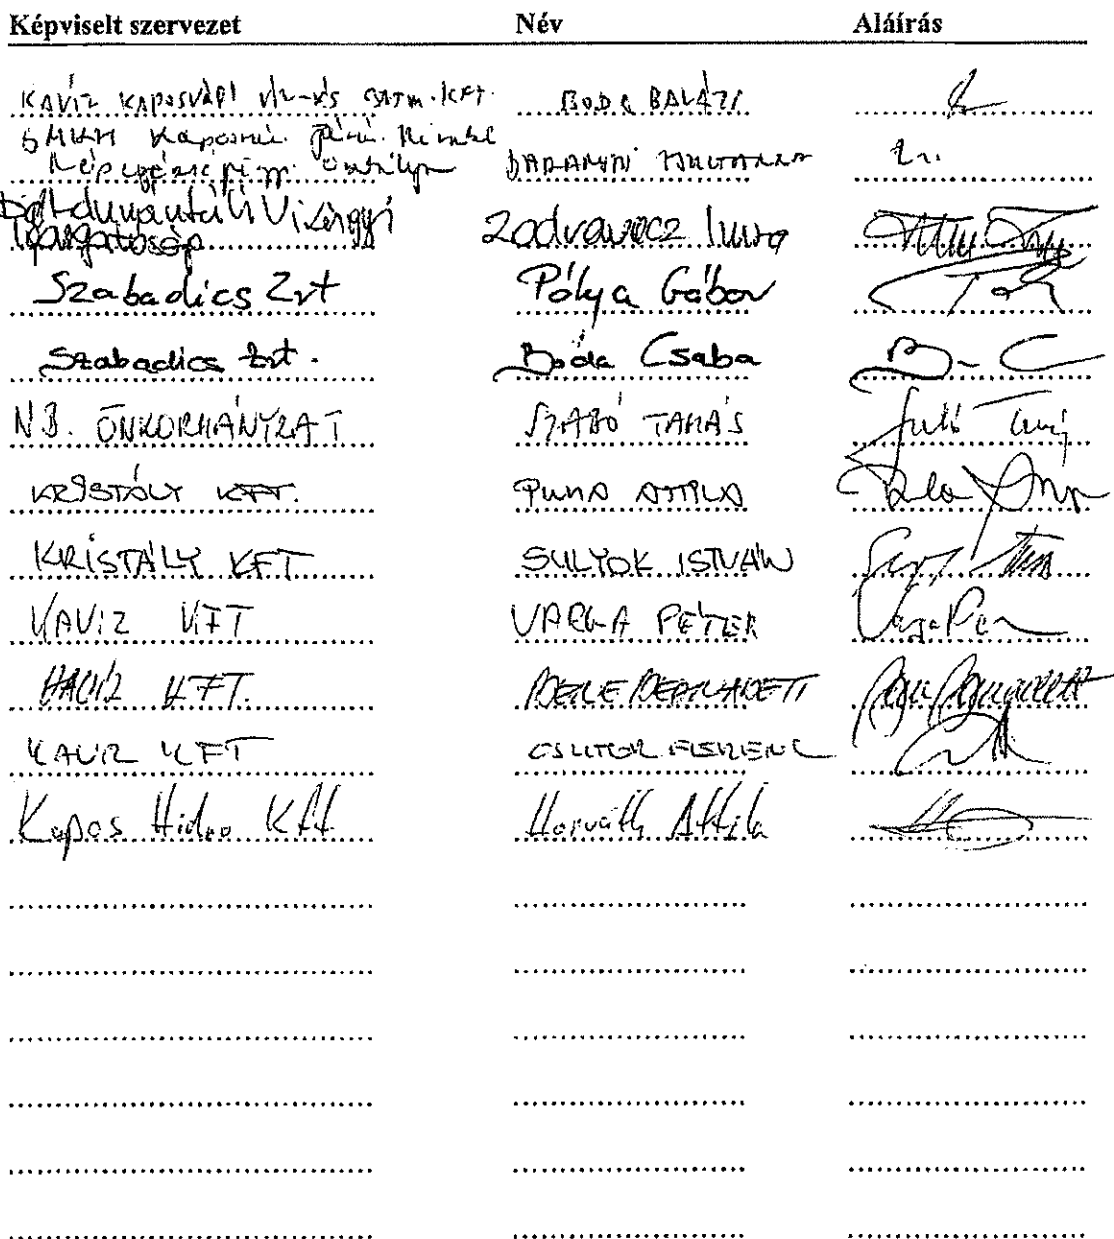 Képviselt szervezet Név Aláírás
KAVÍZ KAPOSVÁRI VÍZ- ÉS CSATM. KFT. BODA BALÁZS
SMKH Kaposvári Járási Hivatal
Népegészségügyi Osztálya
Dél-dunántúli Vízügyi
Igazgatóság Zadravecz Imre
Szabadics Zrt Pólya Gábor
Szabadics Zrt. Bóda Csaba B- C
N.B. ÖNKORMÁNYZAT SZABÓ TAMÁS
KRISTÁLY KFT. PUHA ATTILA
KRISTÁLY KFT SULYOK ISTVÁN
KAVÍZ KFT VARGA PÉTER Varga Péter
KAVÍZ KFT. BERE BERNADETT
KAVÍZ KFT CSUTOR FERENC
Kapos Hidro Kft Horváth Attila